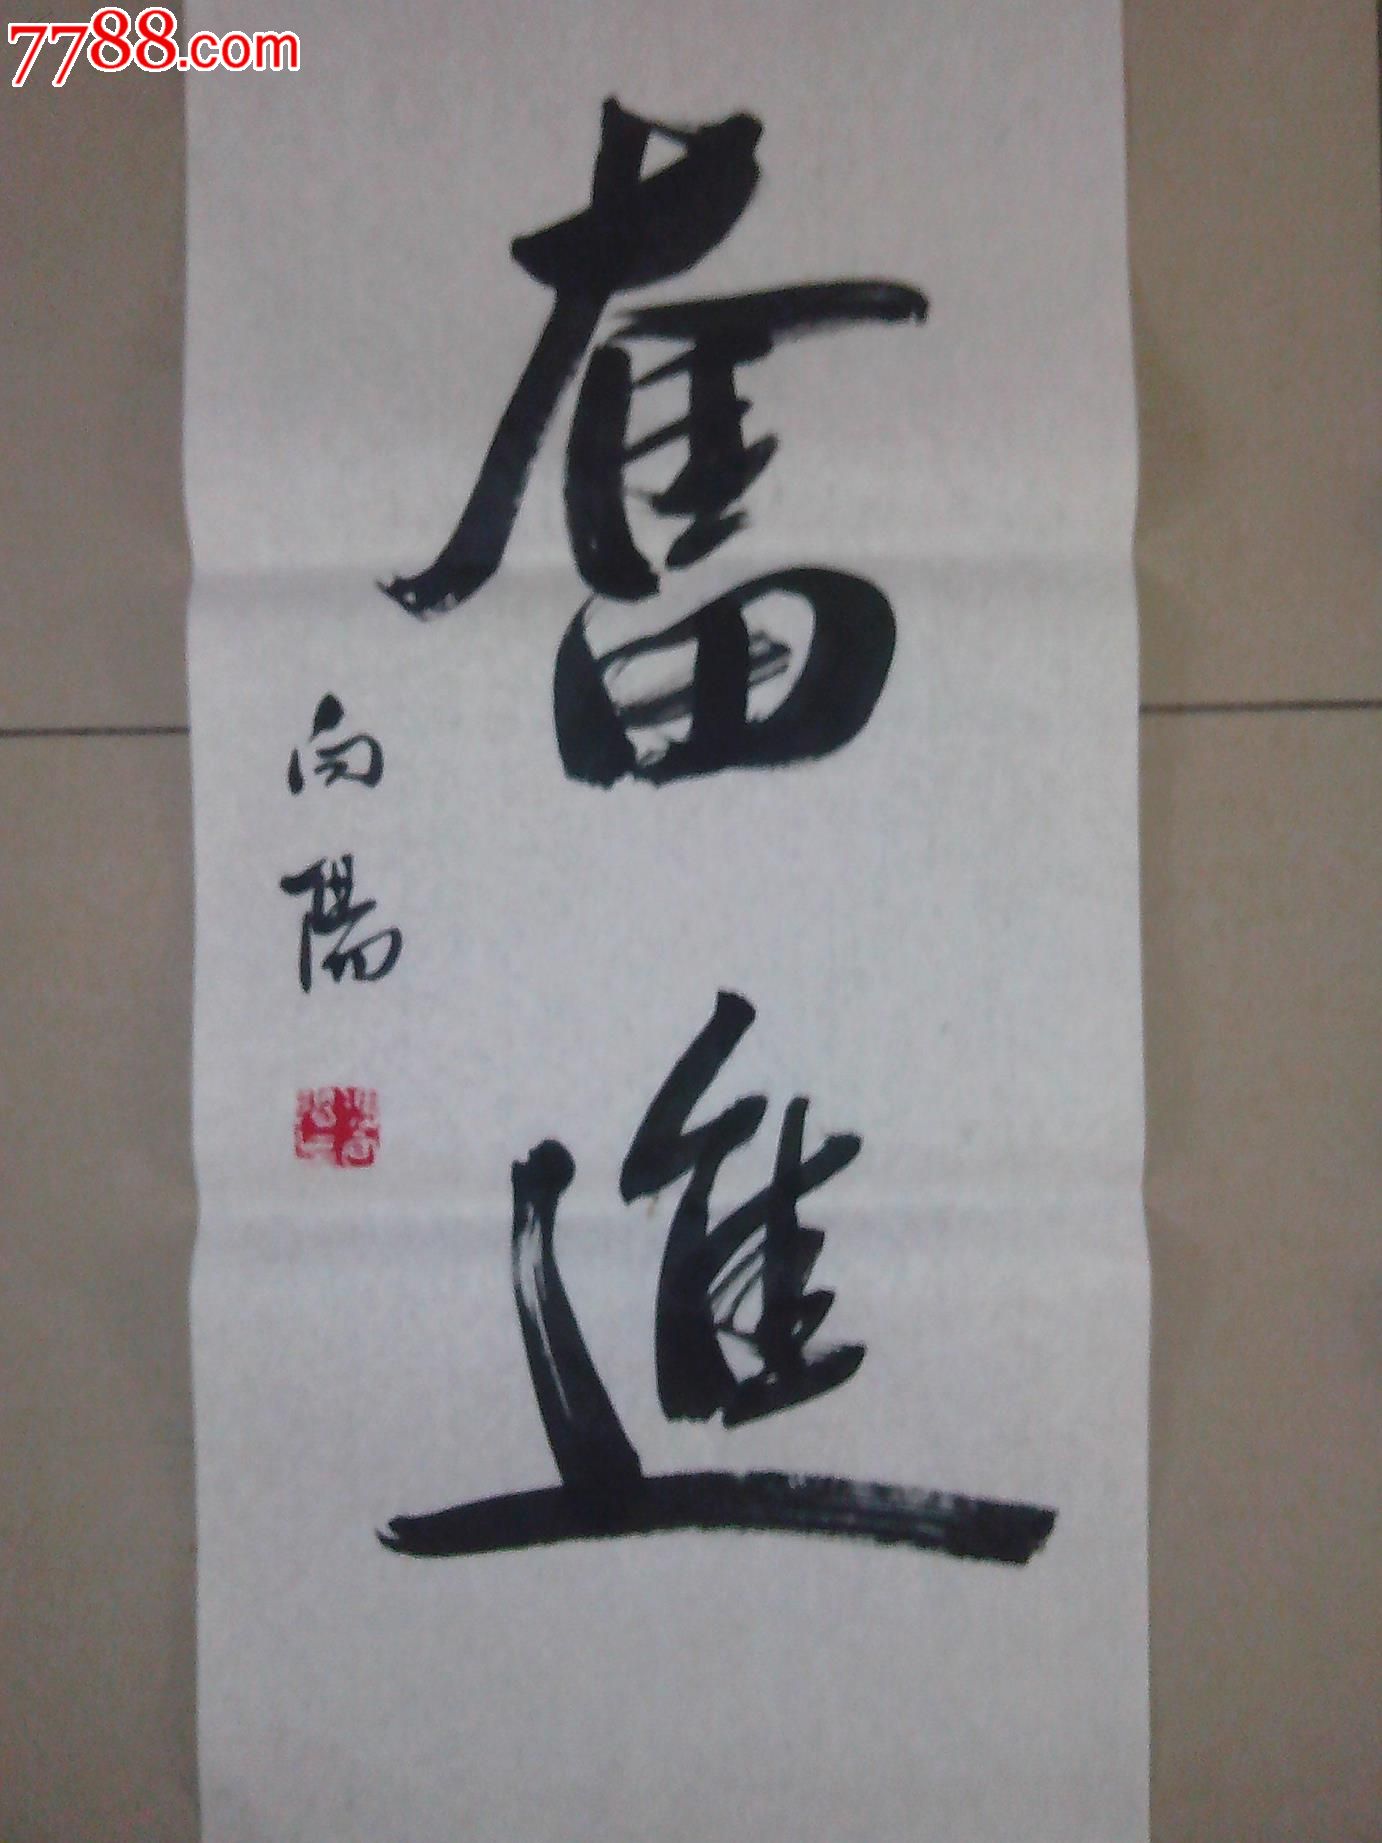 7788.com
奮進
向陽